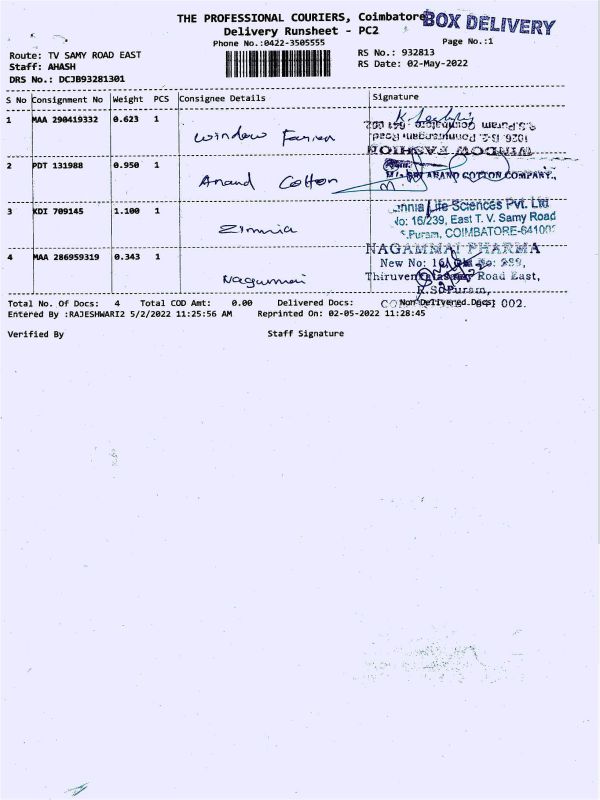 THE PROFESSIONAL COURIERS, Coimbatore
BOX DELIVERY
Delivery Runsheet - PC2
Phone No.:0422-3505555
Page No.:1
Route: TV SAMY ROAD EAST
RS No.: 932813
Staff: AHASH
RS Date: 02-May-2022
DRS No.: DCJB93281301
S No Consignment No Weight PCS Consignee Details Signature
1 MAA 290419332 0.623 1
Window
WINDOW FASHION
1026, B-2, Ponnurangam Road
R.S.Puram, Coimbatore - 641 002
2 PDT 131988 0.950 1
Anand Cotton
ANAND COTTON COMPANY.,
3 KDI 709145 1.100 1
Zinnia
Life Sciences Pvt. Ltd
No: 16/239, East T. V. Samy Road
COIMBATORE-641002
4 MAA 286959319 0.343 1
NAGAMMAI PHARMA
New No: 16/
Road East,
R.S.Puram,
002.
Total No. Of Docs: 4 Total COD Amt: 0.00 Delivered Docs: Non Delivered Docs:
Entered By :RAJESHWARI2 5/2/2022 11:25:56 AM Reprinted On: 02-05-2022 11:28:45
Verified By Staff Signature